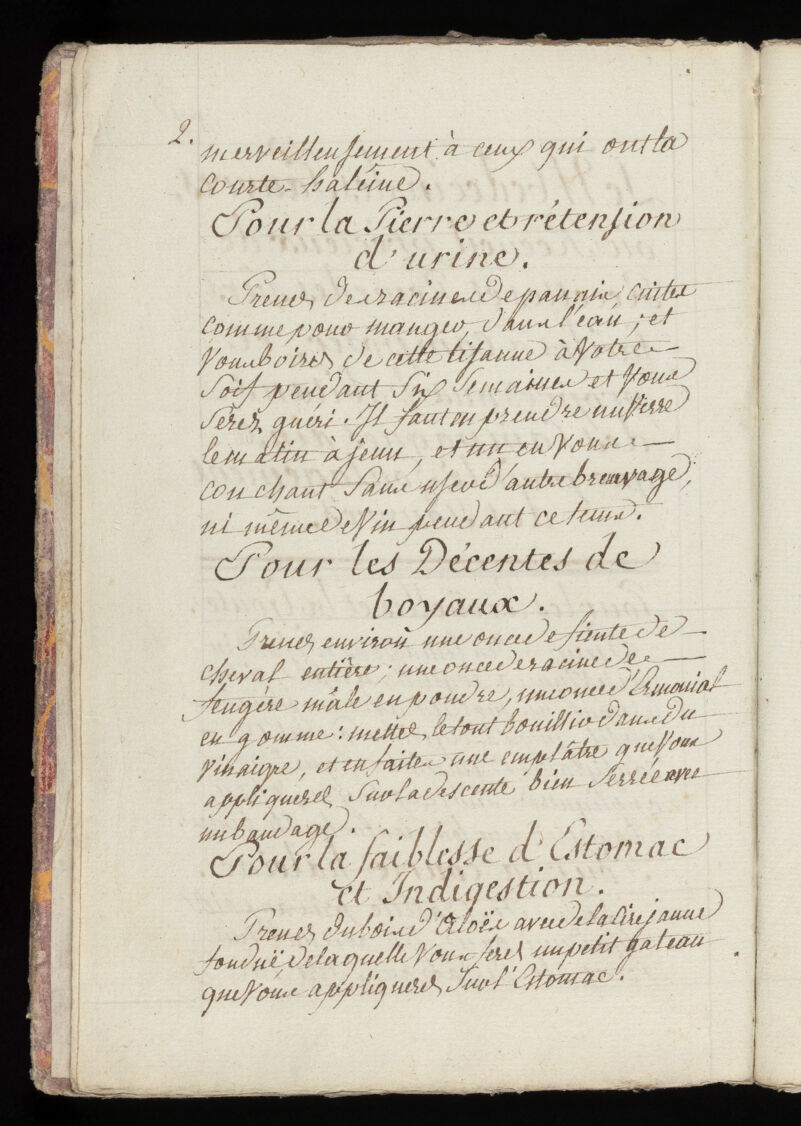 2.
merveilleusement à ceux qui ont la
courte-haléine.
Pour la Pierre et rétension
d'urine.
Prenez des racines de panais, cuites
comme pour manger, dans l'eau, et
vous boirez de cette tisanne à votre
soif pendant six semaines et vous
serez guéri. Il faut en prendre un verre
le matin à jeun, et un en vous
couchant sans user d'autre breuvage,
ni même de vin pendant ce tems.
Pour les Décentes de
boyaux.
Prenez environ une once de fiente de
cheval entière; une once de racine de
feugére mâle en poudre, une once d'Armoniat
en gomme: mettez le tout bouillir dans du
vinaigre, et en faites une emplâtre que vous
appliquerez sur la descente bien serrée avec
un bandage.
Pour la faiblesse d'Estomac
et Indigestion.
Prenez du bois d'Aloës avec de la Cire jaune
fonduë, de laquelle vous ferez un petit gateau
que vous appliquerez sur l'Estomac.